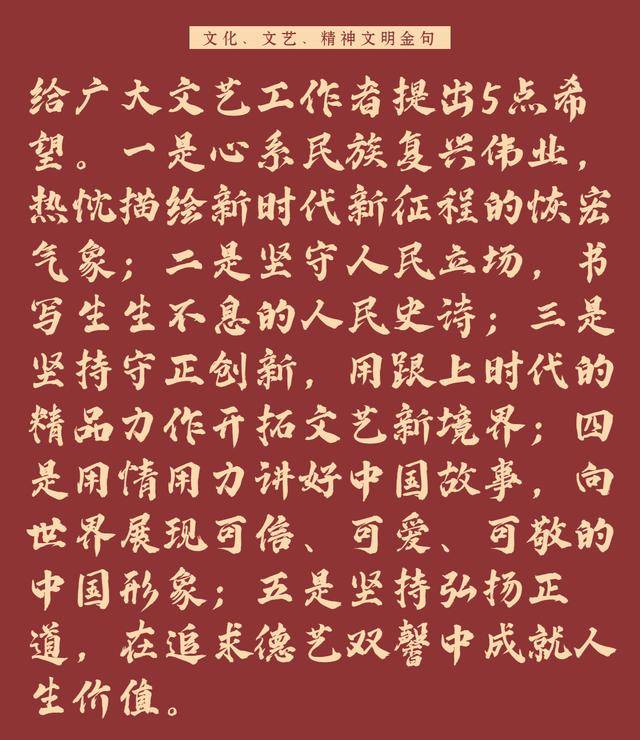 文化、文艺、精神文明金句
给广大文艺工作者提出5点希
望。一是心系民族复兴伟业，
热忱描绘新时代新征程的恢宏
气象；二是坚守人民立场，书
写生生不息的人民史诗；三是
坚持守正创新，用跟上时代的
精品力作开拓文艺新境界；四
是用情用力讲好中国故事，向
世界展现可信、可爱、可敬的
中国形象；五是坚持弘扬正
道，在追求德艺双馨中成就人
生价值。